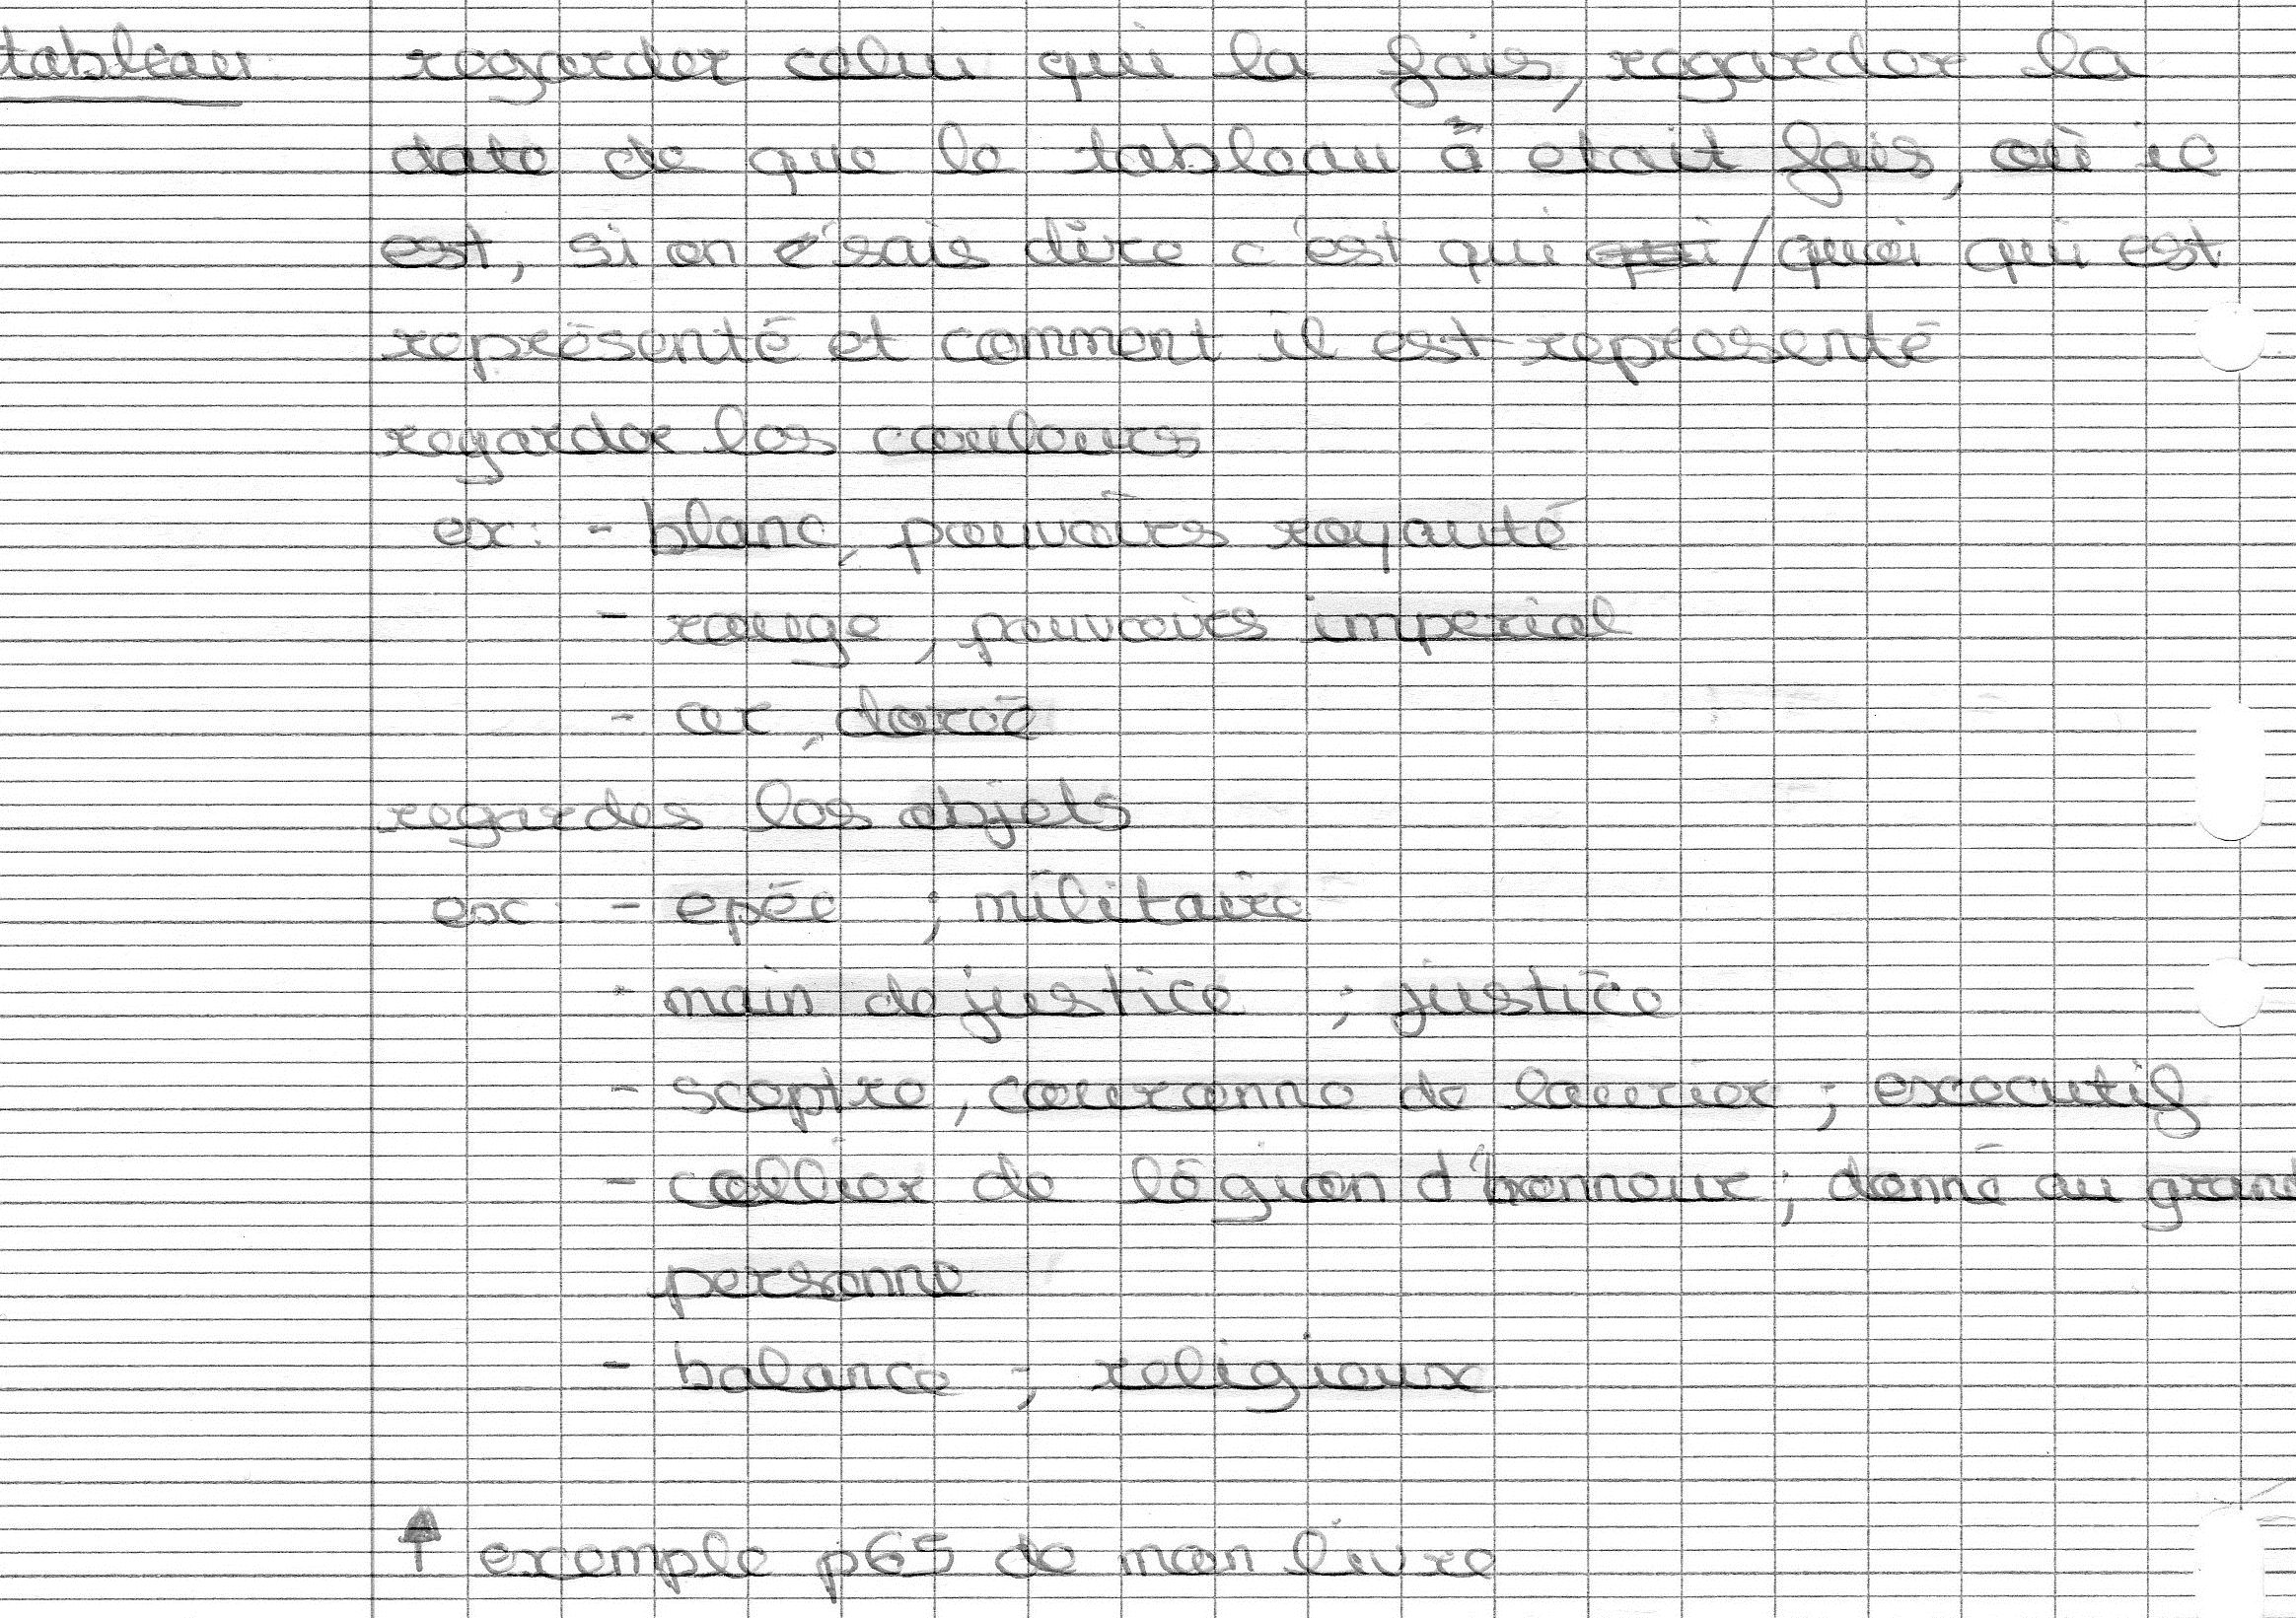 tableau regarder celui qui la fais, regarder la
date de que le tableau à etait fais, où il
est, si on sais dire c'est qui qui / quoi qui est
représenté et comment il est representé
regarder les couleurs
ex: - blanc, pouvoirs royauté
- rouge, pouvoirs imperial
- or, doreé
regardes les objets
ex: - epée ; militaire
- main de justice ; justice
- sceptre, couronne de laurier ; executif
- collier de légion d'honneur ; donné au grand
personne
- balance ; religieux
↑ exemple p65 de mon livre